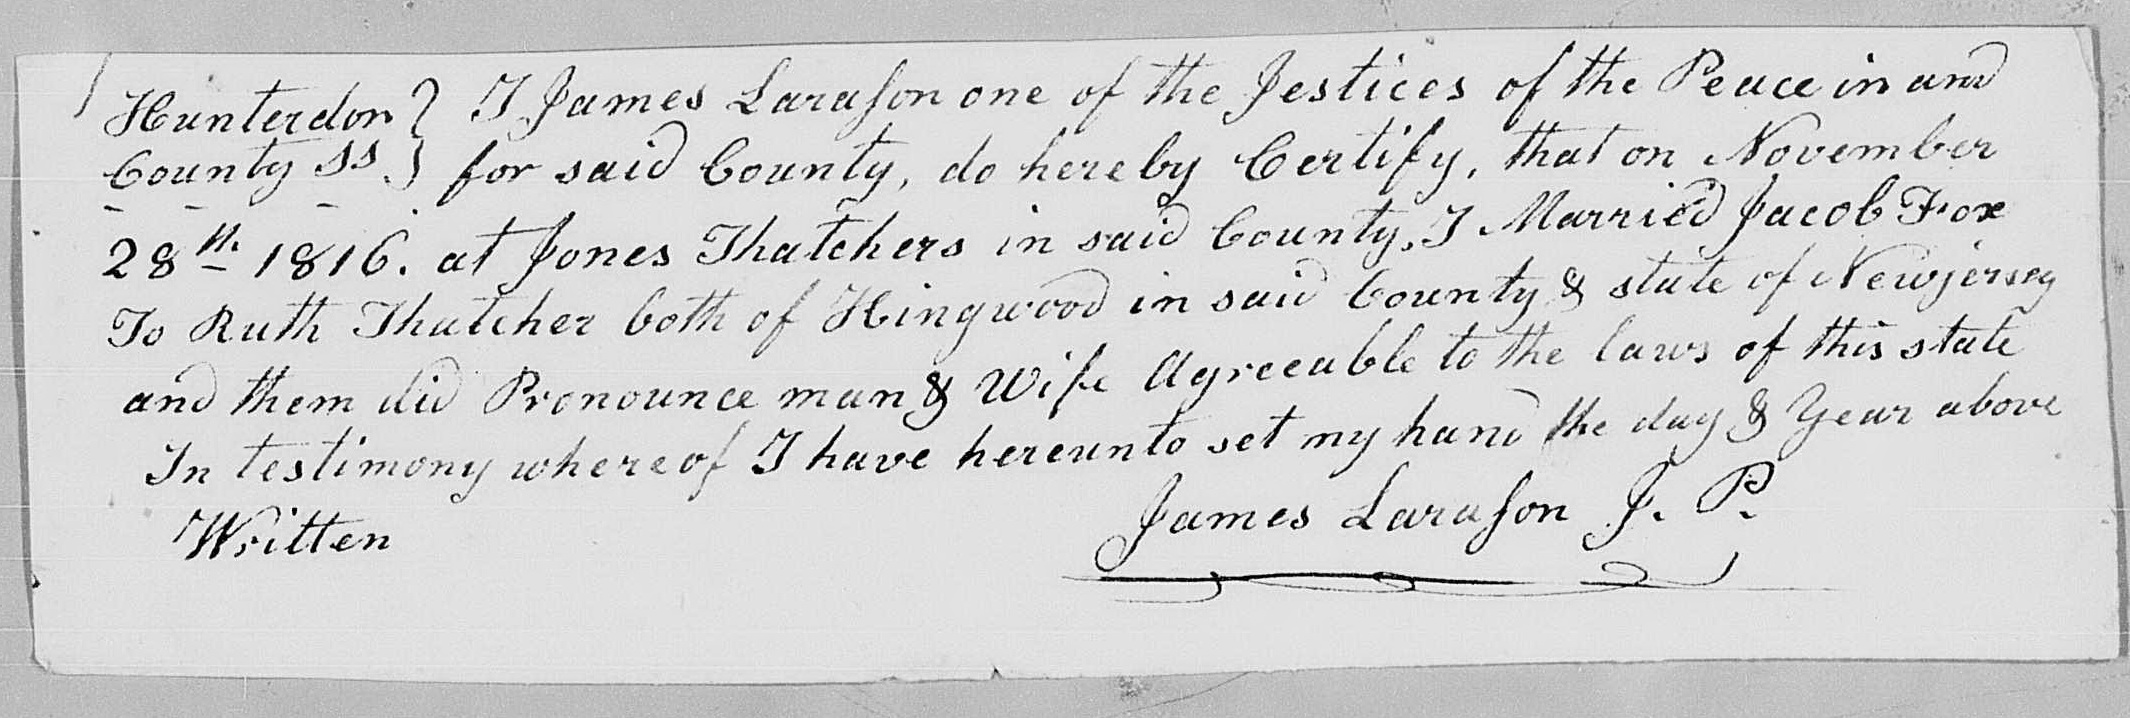 Hunterdon } I James Larason one of the Jestices of the Peace in and
County ss } for said County, do hereby Certify, that on November
28th 1816. at Jones Thatchers in said County, I Married Jacob Fox
To Ruth Thatcher both of Kingwood in said County & state of Newjersey
and them did Pronounce man & Wife Agreeable to the laws of this state
In testimony whereof I have hereunto set my hand the day & Year above
Written
James Larason J. P.